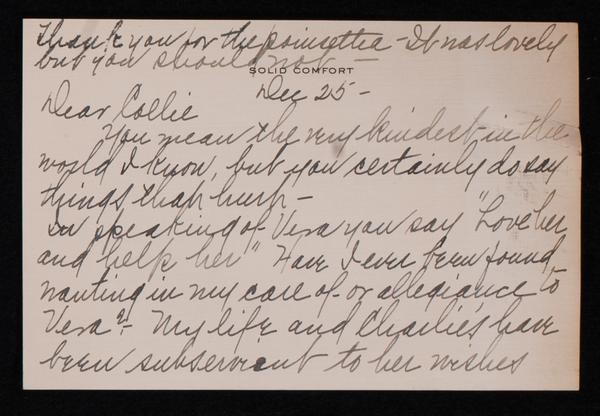 Thank you for the poinsettia - It was lovely
but you should not -
SOLID COMFORT
Dec 25 -
Dear Collie
You mean the very kindest in the
world I know, but you certainly do say
things that hurt -
In speaking of Vera you say "Love her
and help her" Have I ever been found
wanting in my care of or allegiance to
Vera? - My life and Charlie's have
been subservient to her wishes